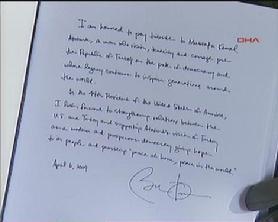 DHA
I am honored to pay tribute to Mustafa Kemal
Ataturk, a man whose vision, tenacity and courage put
the Republic of Turkey on the path of democracy and
whose legacy continues to inspire generations around
the world.
As the 44th President of the United States of America,
I look forward to strengthening relations between the
U.S. and Turkey and supporting Ataturk's vision of Turkey
as a modern and prosperous democracy giving hope
to its people, and providing "peace at home, peace in the world."
April 6, 2009